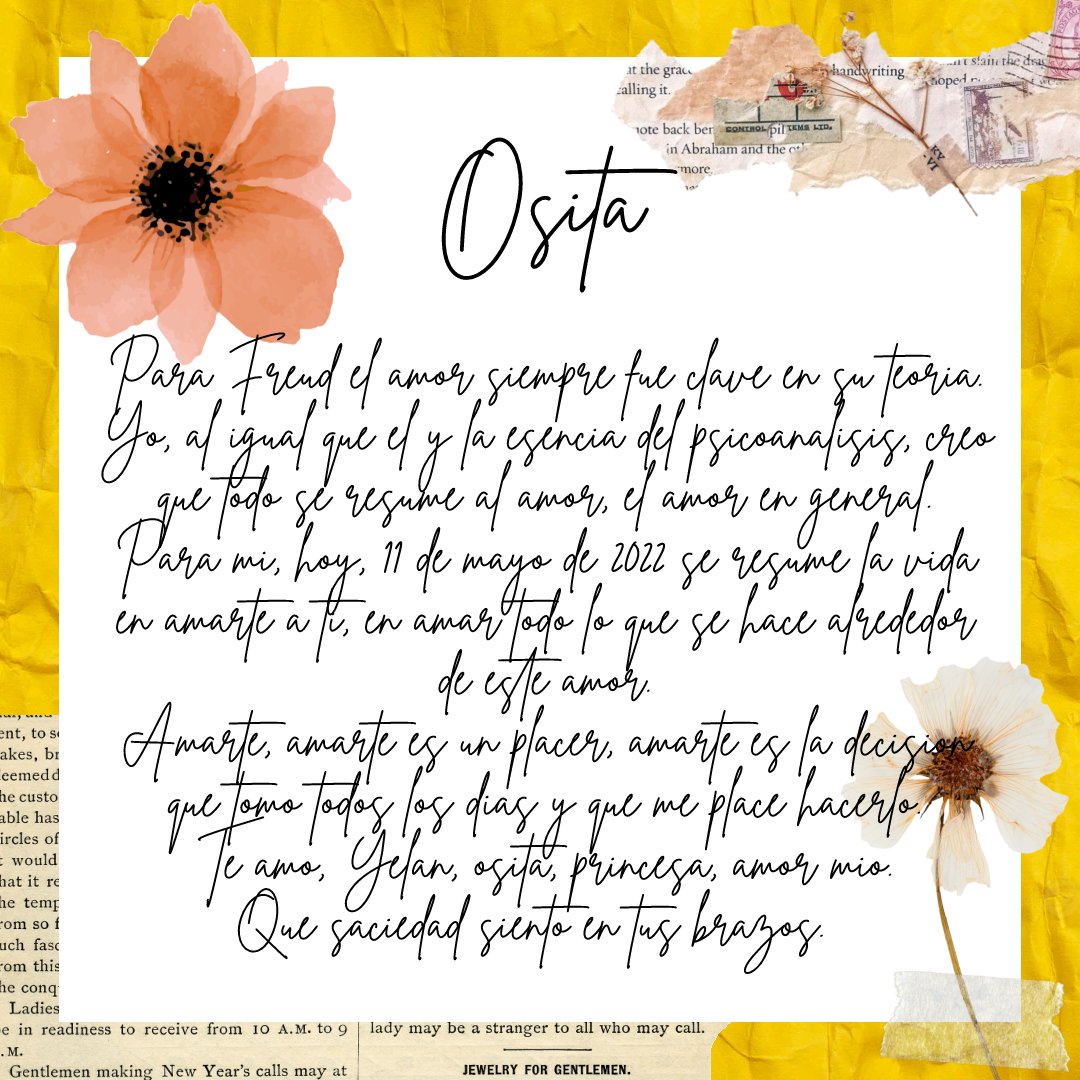 at the
calling it.
handwriting
hoped
note back
CONTROL
TEMS LTD.
in Abraham and the
more.
Osita
Para Freud el amor siempre fue clave en su teoria.
Yo, al igual que el y la esencia del psicoanalisis, creo
que todo se resume al amor, el amor en general.
Para mi, hoy, 11 de mayo de 2022 se resume la vida
en amarte a ti, en amar todo lo que se hace alrededor
de este amor.
Amarte, amarte es un placer, amarte es la decision
que tomo todos los dias y que me place hacerlo.
Te amo, Yelan, osita, princesa, amor mio.
Que saciedad siento en tus brazos.
ent, to
akes,
he
able has
ircles of
t would
hat it
he
rom so
uch
rom this
he
Ladies
e in readiness to receive from 10 A.M. to 9
.M.
Gentlemen making New Year's calls may at
lady may be a stranger to all who may call.
JEWELRY FOR GENTLEMEN.